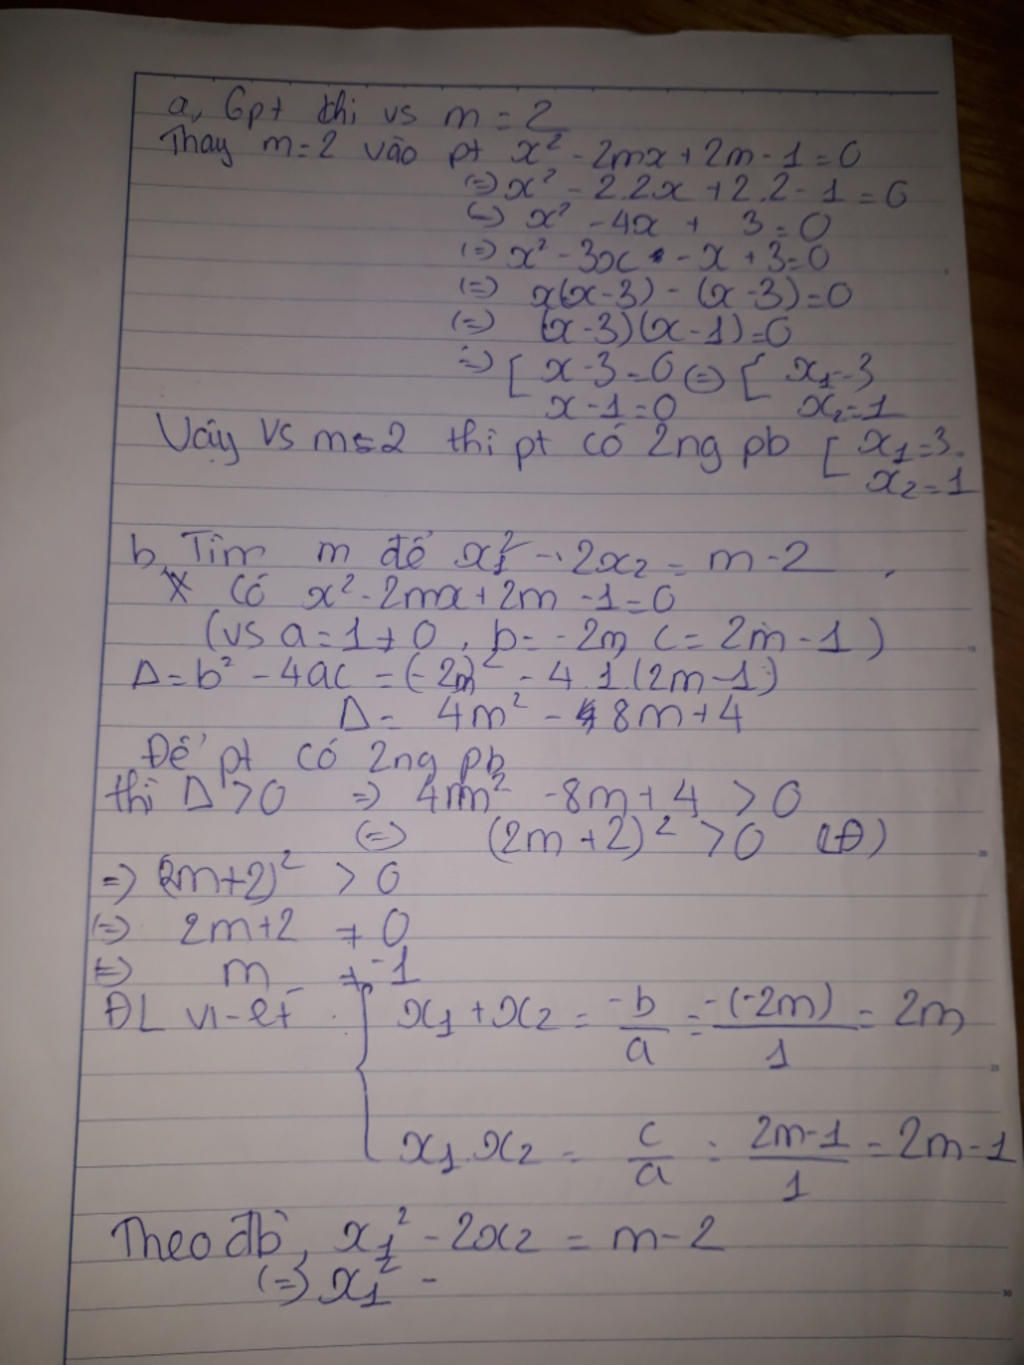 a, Gpt khi vs m = 2
Thay m = 2 vào pt x² - 2mx + 2m - 1 = 0
(=) x² - 2.2x + 2.2 - 1 = 0
(=) x² - 4x + 3 = 0
(=) x² - 3x - x + 3 = 0
(=) x(x - 3) - (x - 3) = 0
(=) (x - 3)(x - 1) = 0
=) [ x - 3 = 0 (=) [ x₁ = 3
x - 1 = 0 x₂ = 1
Vậy vs m = 2 thì pt có 2ng pb [ x₁ = 3
x₂ = 1
b, Tìm m để x₁² - 2x₂ = m - 2
* Có x² - 2mx + 2m - 1 = 0
(vs a = 1 ≠ 0, b = -2m, c = 2m - 1)
Δ = b² - 4ac = (-2m)² - 4.1.(2m - 1)
Δ = 4m² - 8m + 4
Để pt có 2ng pb
thì Δ > 0 =) 4m² - 8m + 4 > 0
(=) (2m + 2)² > 0 (Đ)
=) (2m + 2)² > 0
(=) 2m + 2 ≠ 0
(=) m ≠ -1
ĐL vi-ét { x₁ + x₂ = -b/a = -(-2m)/1 = 2m
x₁.x₂ = c/a = 2m-1/1 = 2m - 1
Theo đb, x₁² - 2x₂ = m - 2
(=) x₁² -